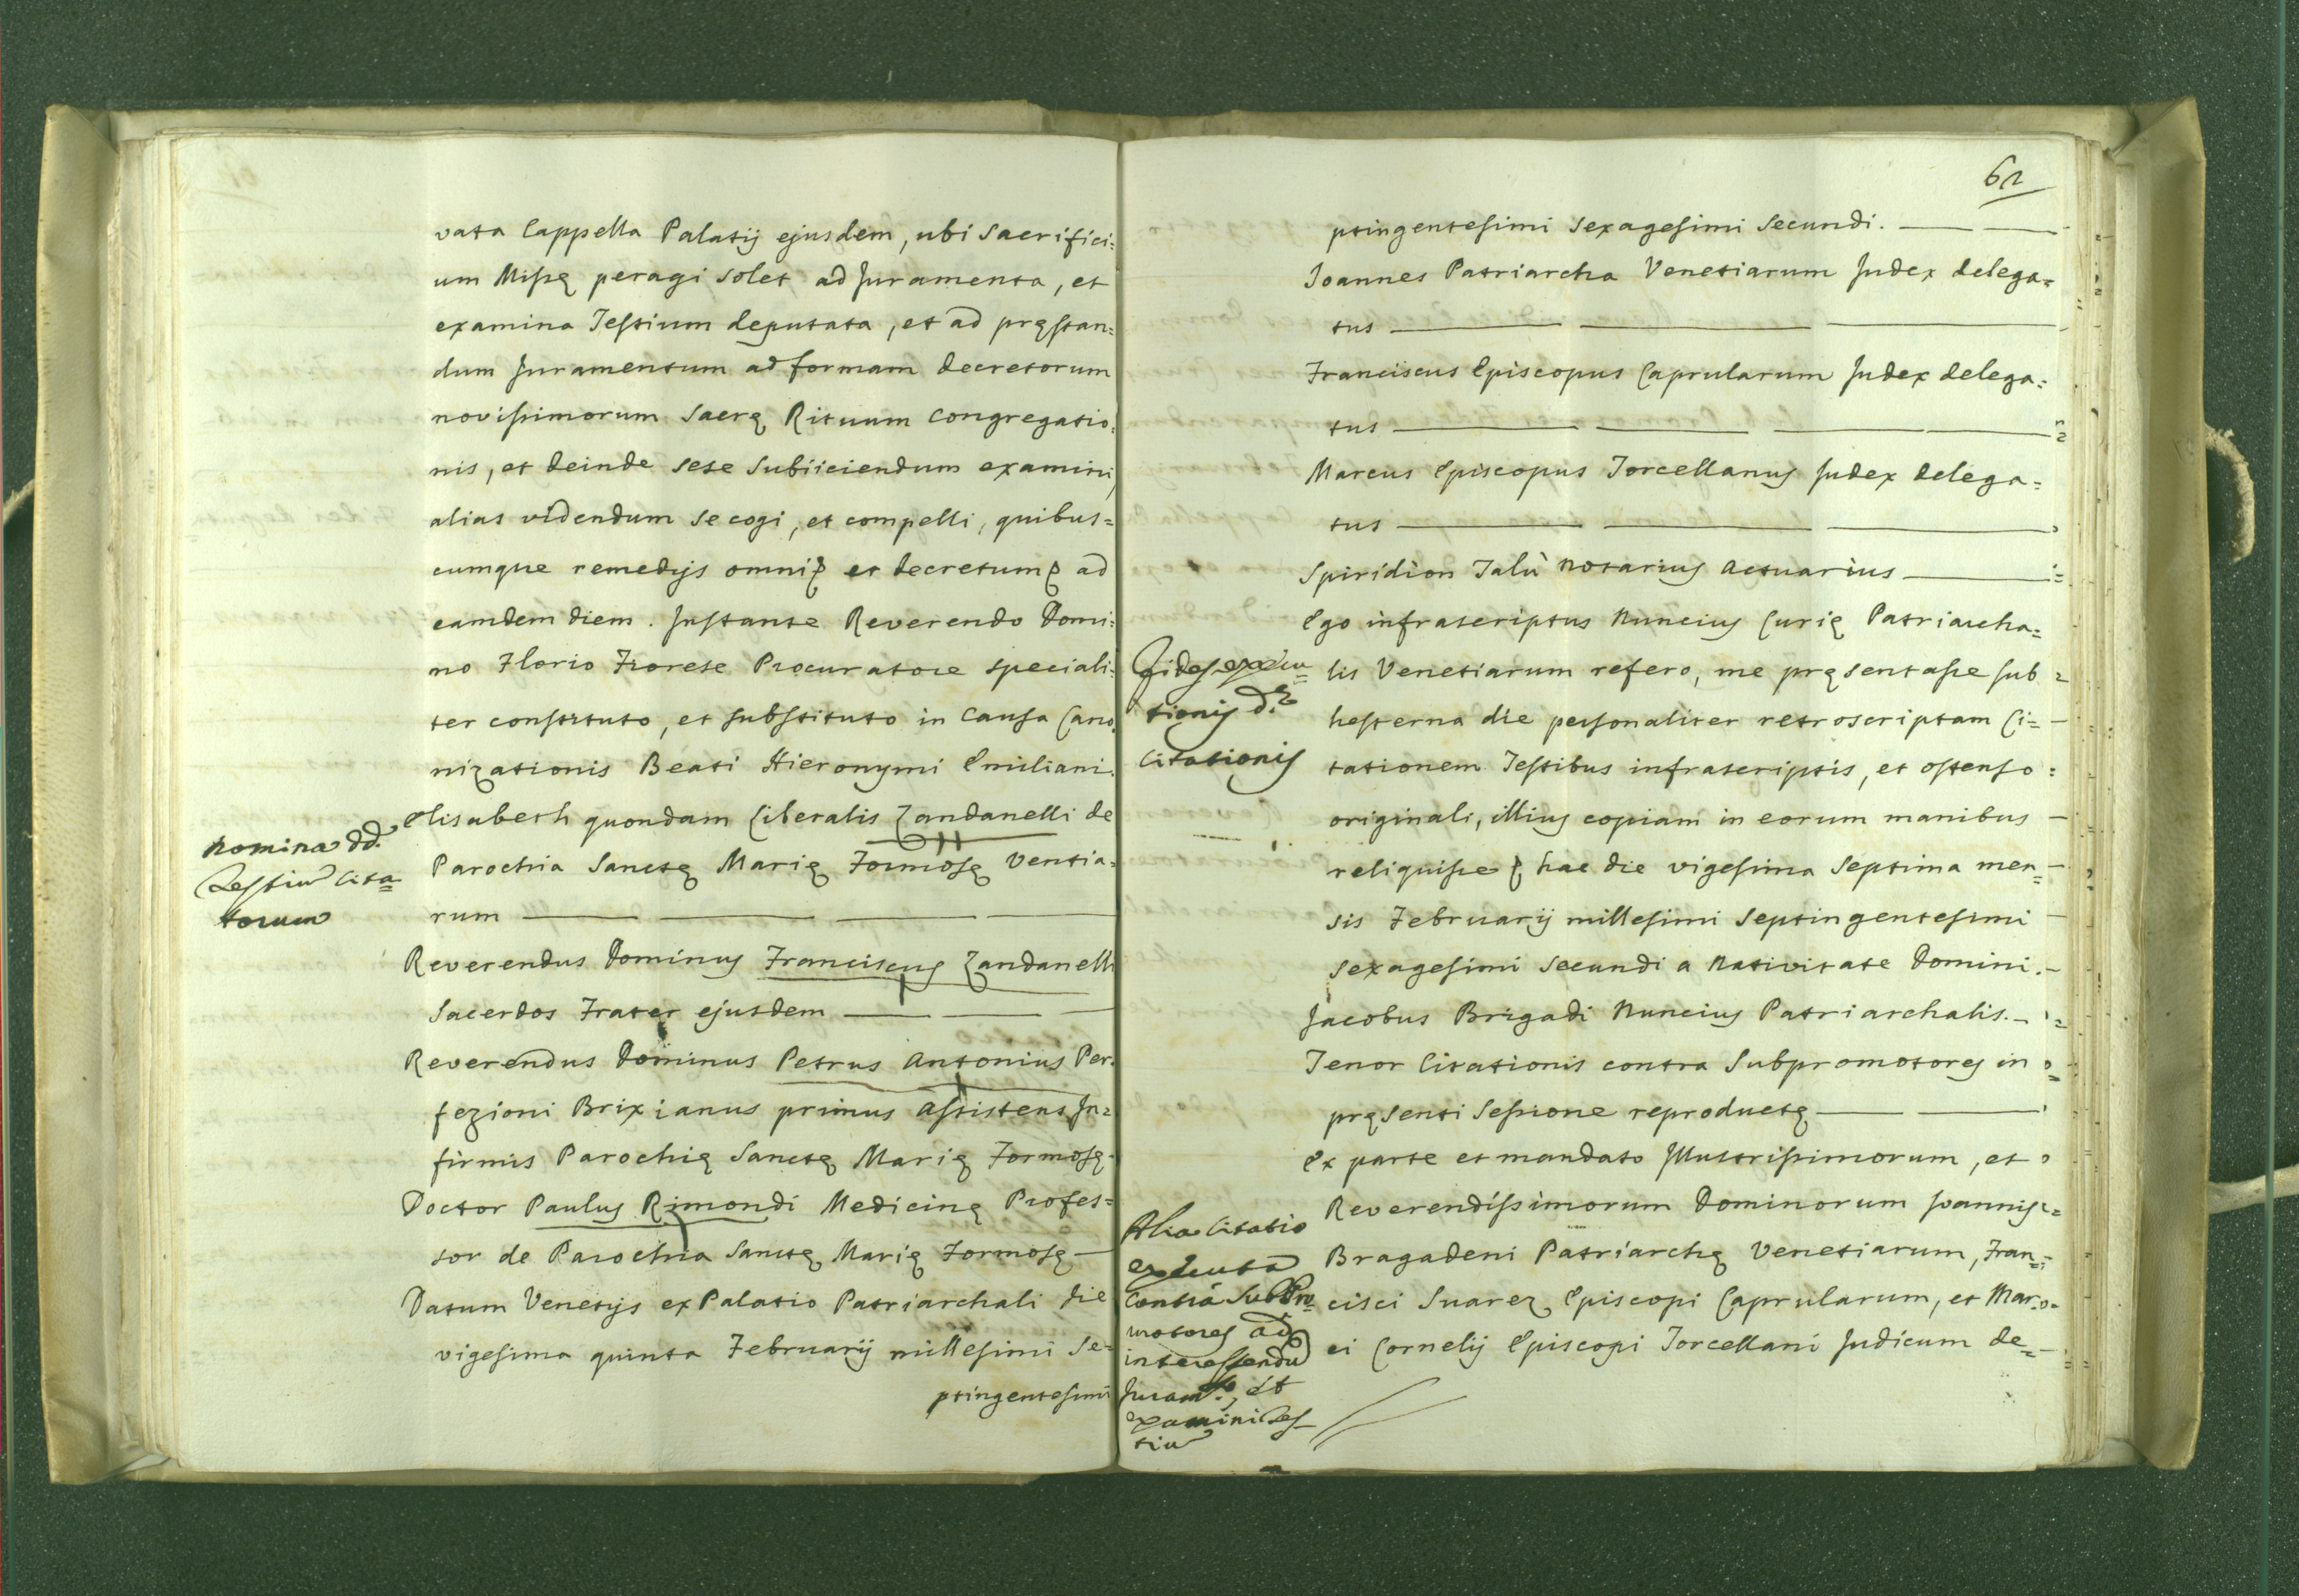 vata Cappella Palatij ejusdem, ubi Sacrifici:
um Missę peragi solet ad Juramenta, et
examina Testium deputata, et ad pręstan:
dum Juramentum ad formam Decretorum
novissimorum Sacrę Rituum Congregatio:
nis, et deinde sese subiiciendum examini,
alias videndum se cogi, et compelli, quibus=
cumque remedijs omni et decretum ad
eamdem diem. Instante Reverendo Domi:
no Florio Fiorese Procuratore speciali:
ter constituto, et substituto in Causa Cano
nizationis Beati Hieronymi Emiliani.
Nomina dd.
Testium Cita=
torum
Elisabeth quondam Liberalis Zandanelli de
Parochia Sanctę Marię Formosę Ventia=
rum
Reverendus Dominus Franciscus Zandanelli
Sacerdos Frater ejusdem
Reverendus Dominus Petrus Antonius Per=
fezioni Brixianus primus Assistens In=
firmis Parochię Sanctę Marię Formosę
Doctor Paulus Rimondi Medicinę Profes=
sor de Parochia Sanctę Marię Formosę
Datum Venetijs ex Palatio Patriarchali die
vigesima quinta Februarij millesimi Se=
ptingentesimi
62
ptingentesimi sexagesimi secundi.
Joannes Patriarcha Venetiarum Judex delega=
tus
Franciscus Episcopus Caprularum Judex delega=
tus
Marcus Episcopus Torcellanus Judex delega=
tus
Spiridion Talù Notarius Actuarius
Ego infrascriptus Nuncius Curię Patriarcha=
Fides execu=
tionis
Citationis
lis Venetiarum refero, me pręsentasse sub
hesterna die personaliter retroscriptam Ci=
tationem Testibus infrascriptis, et ostenso
originali, illius copiam in eorum manibus
reliquisse hac die vigesima septima men=
sis Februarij millesimi septingentesimi
sexagesimi secundi a Nativitate Domini.
Jacobus Brigadi Nuncius Patriarchalis.
Tenor Citationis contra Subpromotores in
pręsenti Sessione reproductę
Ex parte et mandato Illustrissimorum, et
Reverendissimorum Dominorum Joannis
Alia Citatio
executa
contra SubPro=
motores ad
interessendũ
Juram.to, et
examini Tes
tiũ
Bragadeni Patriarchę Venetiarum, Fran=
cisci Suarez Episcopi Caprularum, et Mar=
ci Cornelij Episcopi Torcellani Judicum de=